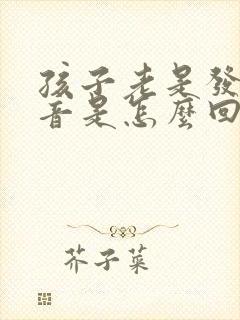 孩子老是發
音是怎麼回
芥子菜